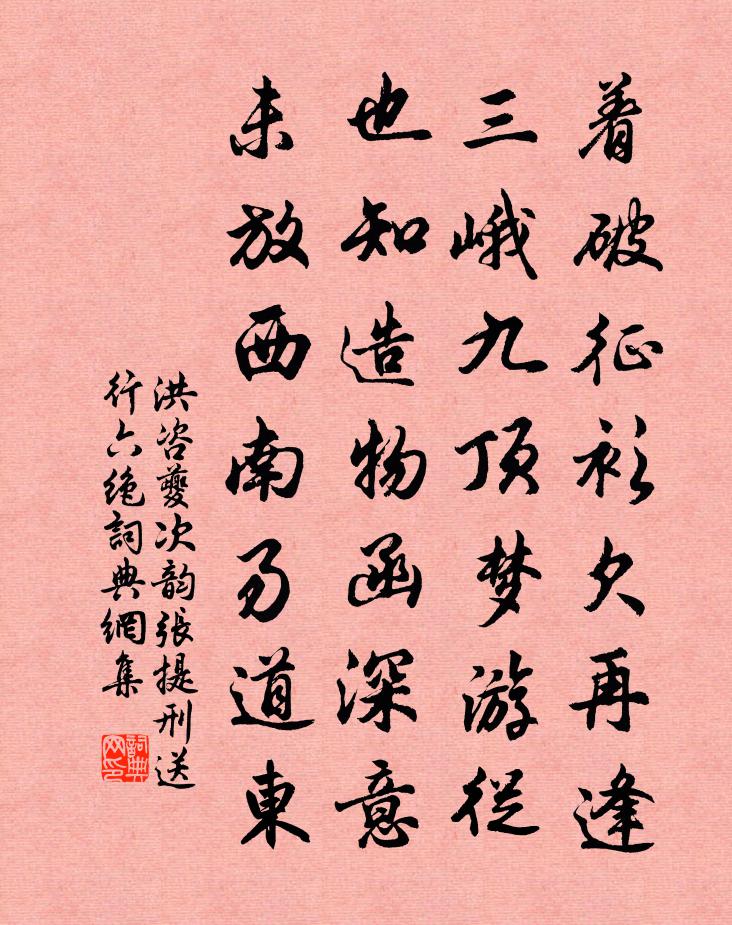 着破征衫欠再逢
三峨九顶梦游從
也知造物函深意
未放西南易道東
洪咨夔次韵張提刑送
行六绝詞典網集
詞典
网印